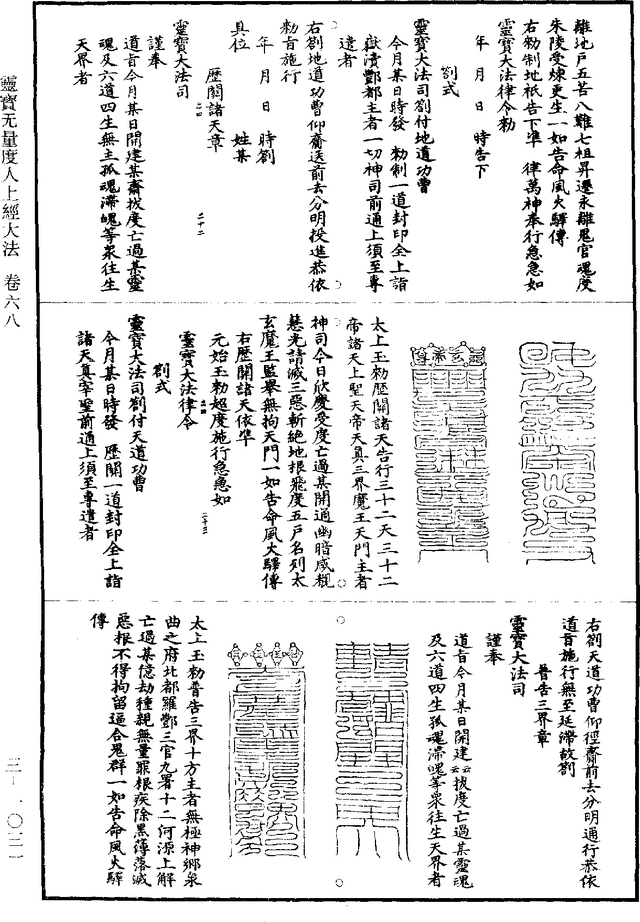 離地戶五苦八難七祖昇遷永離鬼官魂度
朱陵受煉更生一如告命風火驛傳
右勑制地祇告下準　律萬神奉行急急如
靈寶大法律令勑
年　月　日　時告下
劄式
靈寶大法司劄付地道功曹
今月某日時發　勑制一道封印全上詣
嶽瀆酆都主者一切神司前通上須至專
遣者
右劄地道功曹仰齎送前去分明投進恭依
勑旨施行
年　月　日　時劄
具位　姓某
歷關諸天章
靈寶大法司
謹奉
道旨今月某日開建某齋拔度亡過某靈
魂及六道四生無主孤魂滯魄等衆往生
天界者
二十二
太上玉勑歷關諸天告行三十二天三十二
帝諸天上聖天帝天真三界魔王天門主者
神司今日欣慶受度亡過某開通幽暗咸覩
慧光請滅三惡斬絕地根飛度五戶名列太
玄魔王監舉無拘天門一如告命風火驛傳
右歷關諸天依準
元始玉勑超度施行急急如
靈寶大法律令
劄式
靈寶大法司劄付天道功曹
今月某日時發　歷關一道封印全上詣
諸天真宰聖前通上須至專遣者
二十三
右劄天道功曹仰徑齎前去分明通行恭依
道旨施行無至延滯故劄
普告三界章
靈寶大法司
謹奉
道旨今月某日開建云云拔度亡過某靈魂
及六道四生孤魂滯魄等衆往生天界者
太上玉勑普告三界十方主者無極神鄉泉
曲之府北都羅酆三官九署十二河源上解
亡過某億劫種親無量罪根疾除黑簿落滅
惡根不得拘留逼合鬼群一如告命風火驛
傳
靈寶无量度人上經大法　卷六八
三－一〇三一